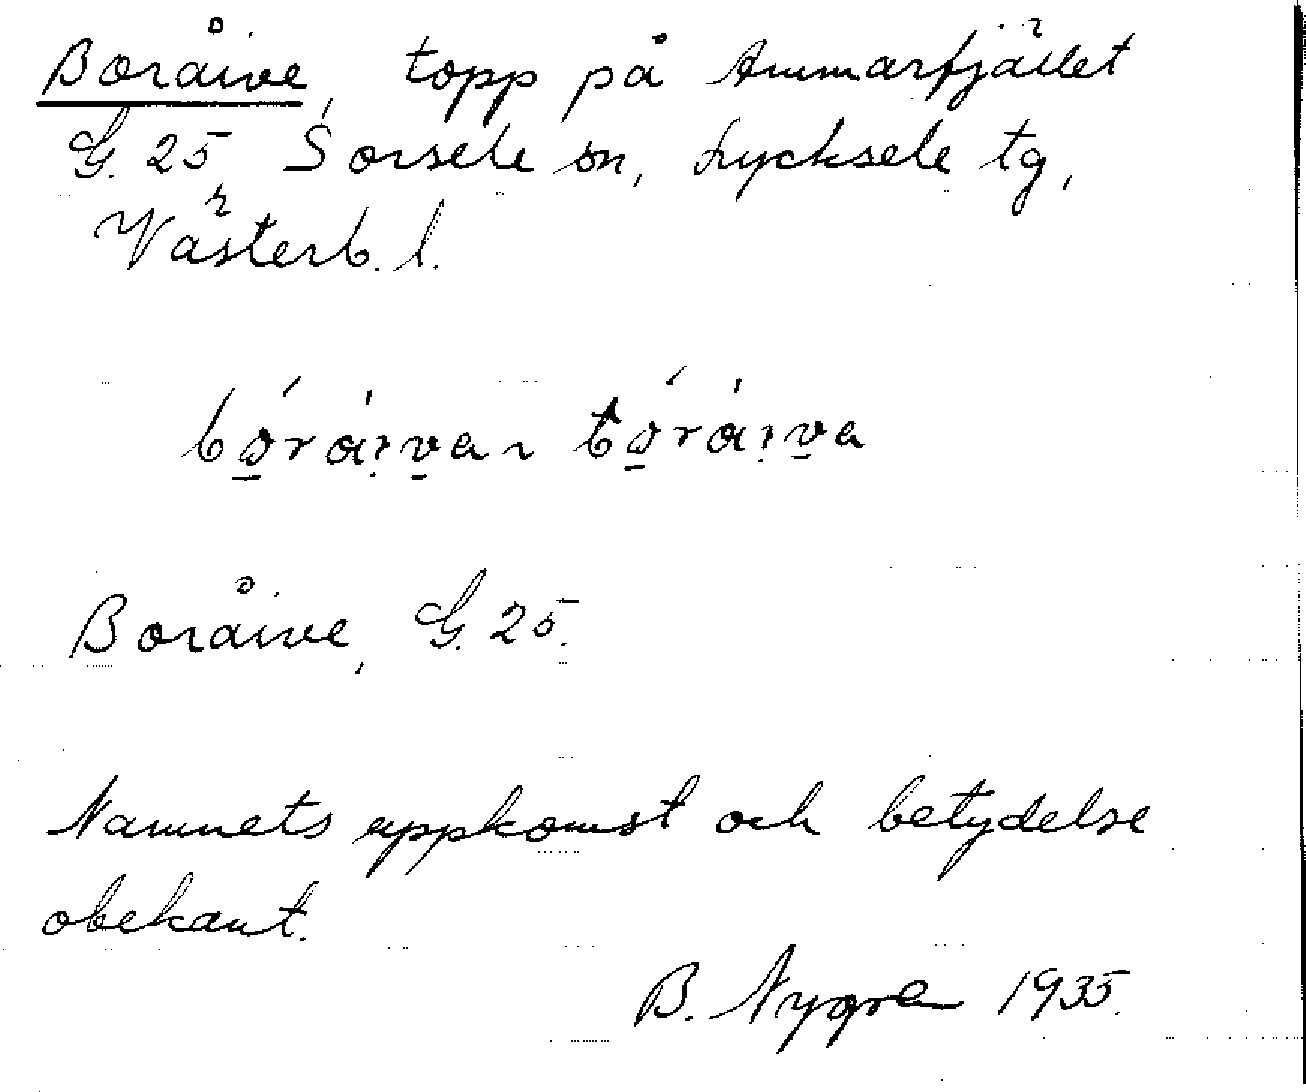 Boråive, topp på Ammarfjället
G. 25 Sorsele sn, Lycksele tg,
Västerb. l.
Boråive, G. 25.
Namnets uppkomst och betydelse
obekant.
B. Nygren 1935.